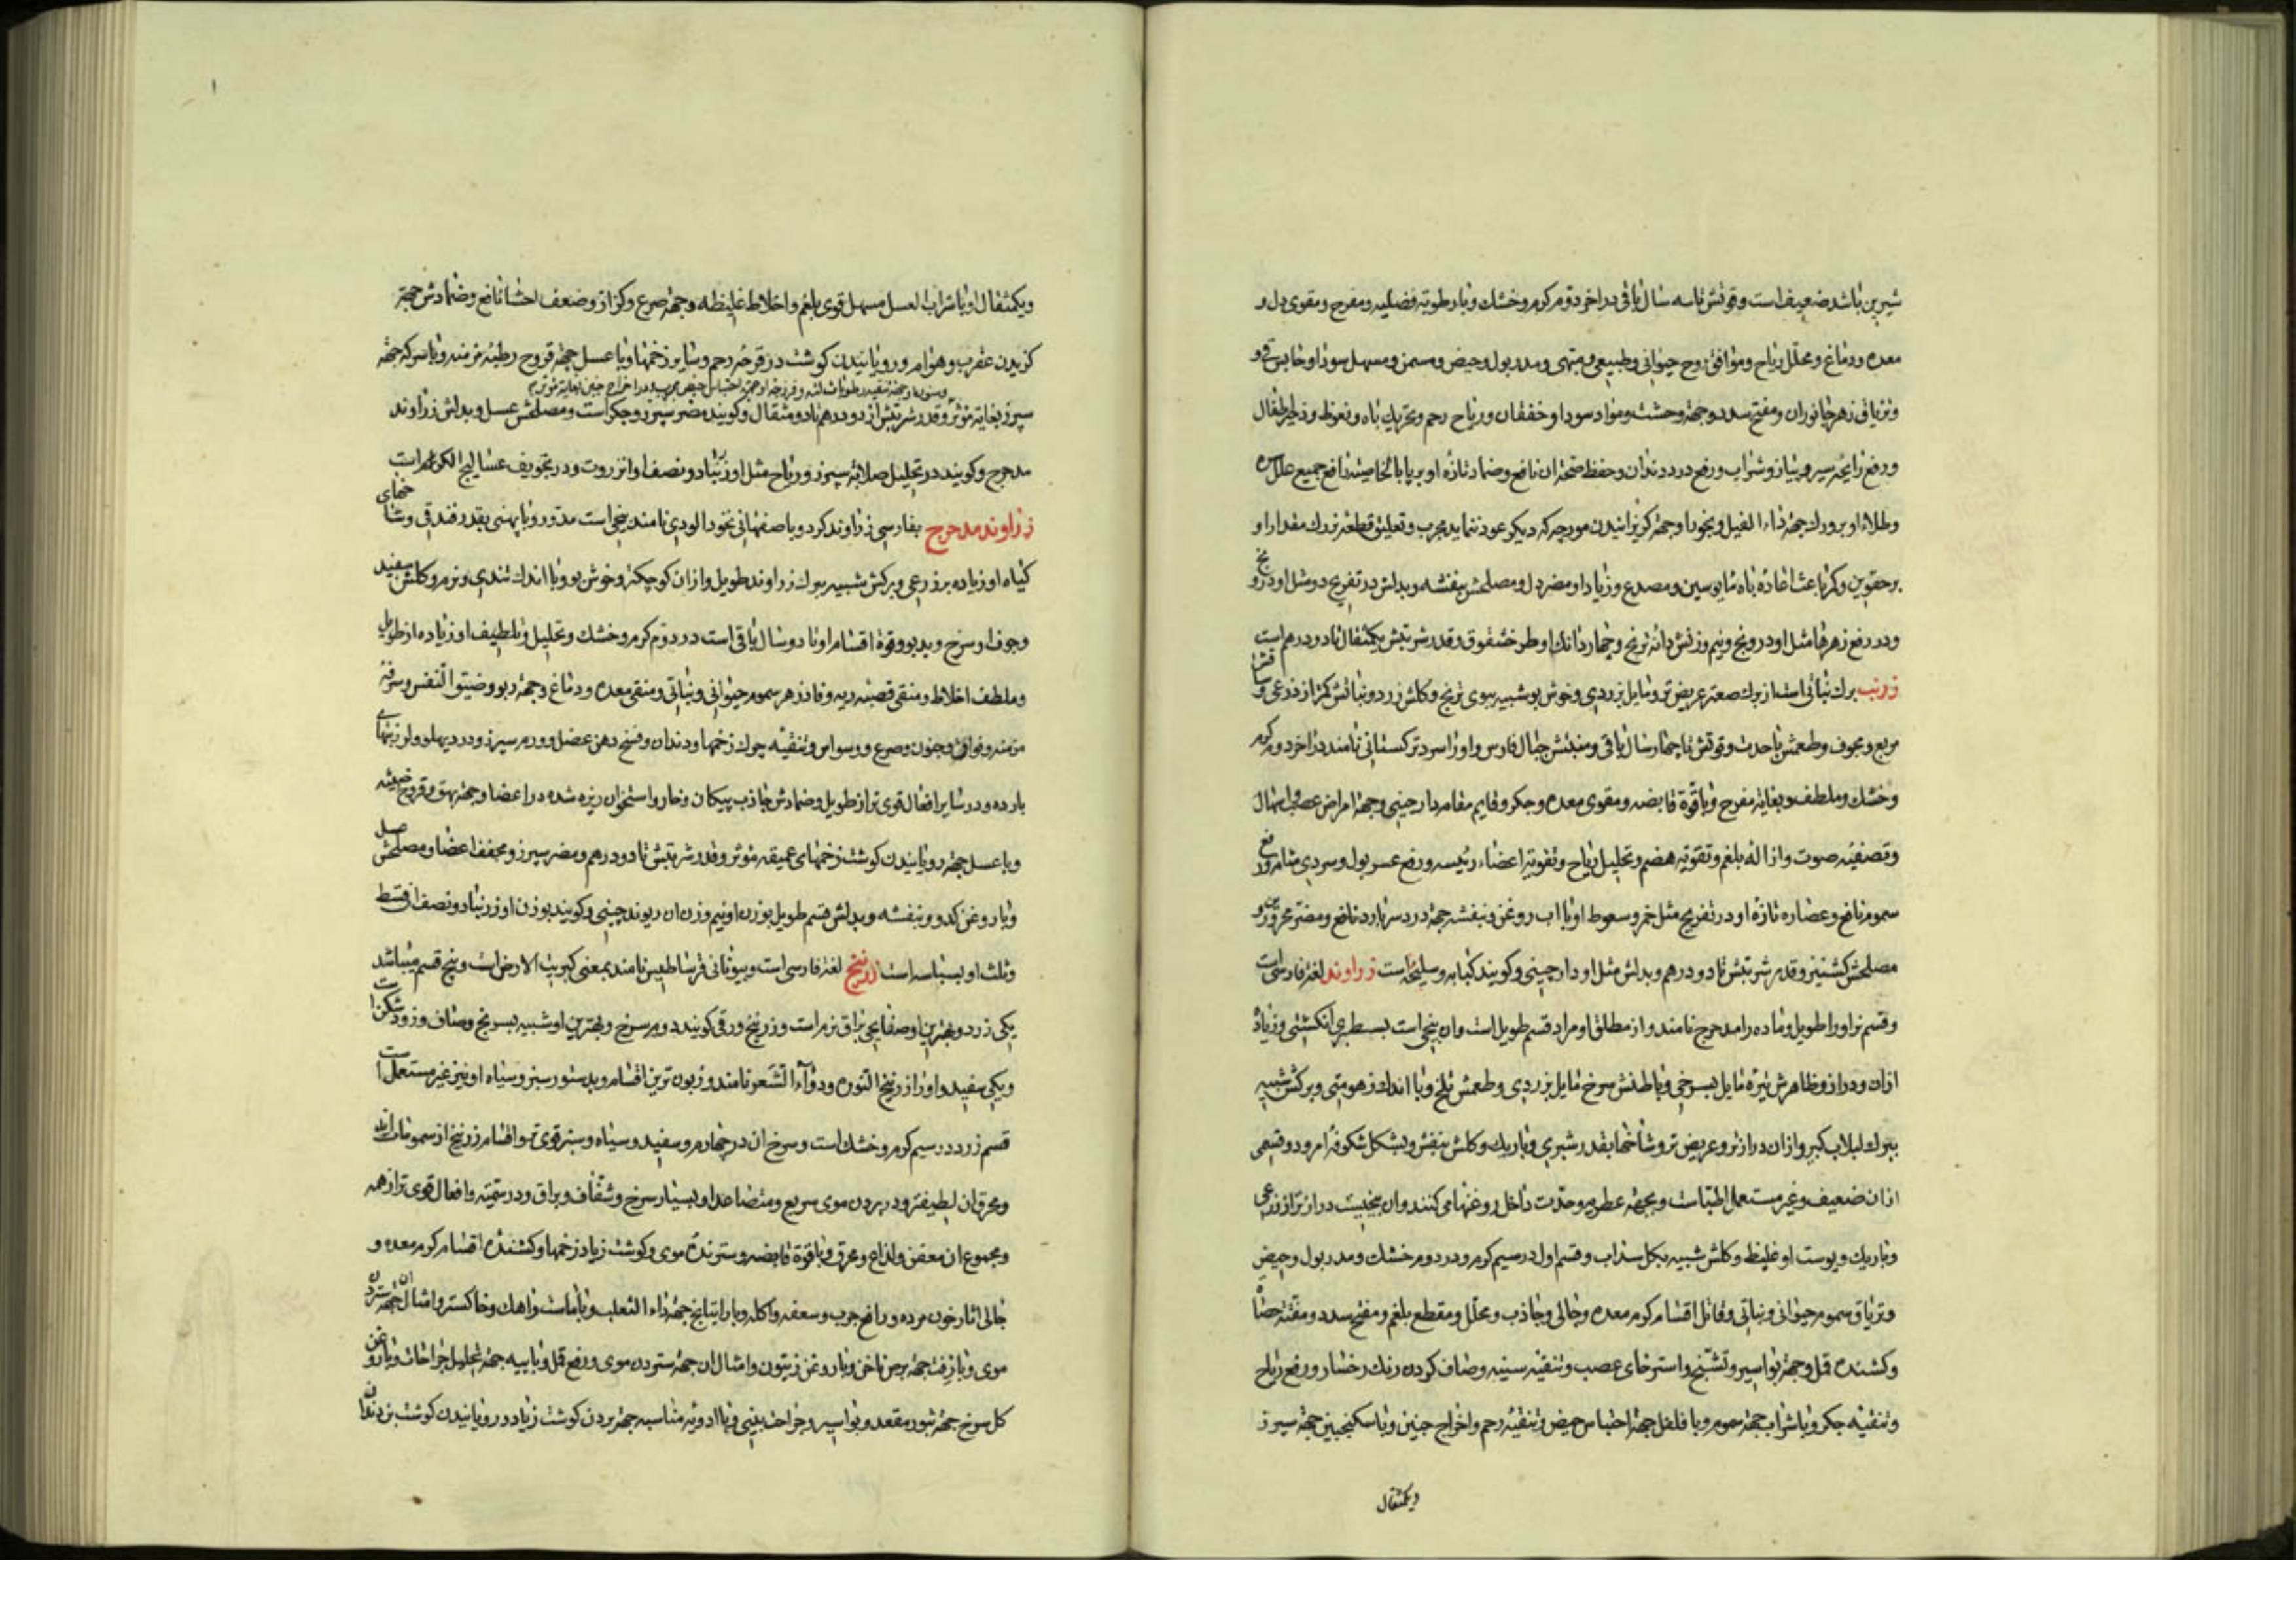 شیرین باشد ضعیف است و قوتش تا سه سال باقی در اخر دوم کرم و خشک و با رطوبة فضلیه و مفرح و مقوی دل و
معده و دماغ و محلل ریاح و موافق روح حیوانی و طبیعی و مبهی و مدر بول و حیض و مسمن و مسهل سودا و حابس قی و
و تریاق زهر جانوران و مفتح سدد و جهة وحشت و مواد سودا و خفقان و ریاح رحم و تحریک باه و نعوظ و زحیر اطفال
و رفع رایحه سیر و پیاز و شراب و رفع درد دندان و حفظ صحة ان نافع و ضماد تازه او بر پا بالخاصیة نافع جمیع علل
و طلاء او بر ورک جهة داء الفیل و بخور او جهة کریزانیدن مورچه که دیکر عود ننماید مجرب و تعلیق قطعه بزرک مقدار او
بر حقوین و کمر باعث اعاده باه مایوسین و مصدع و زیاد او مضر دل و مصلحش بنفشه و بدلش در تفریح دو مثل او درونج
و در رفع زهرها مثل او درونج و نیم وزنش دانه ترنج و چهار دانک او طرخشقوق و قدر شربتش یکمثقال تا دو درهم است
زرنب برک نباتی است از برک صعتر عریض تر و مایل بزردی و خوش بو شبیه ببوی ترنج و کلش زرد و نباتش کمتر از ذرعی و ساقش
مربع و مجوف و طعمش با حدت و قوتش تا چهار سال باقی و منبتش جبال فارس و او را سرو ترکستانی نامند در اخر دوم کرم
و خشک و ملطف و بغایة مفرح و با قوة قابضه و مقوی معده و جکر و قایم مقام دارچینی و جهة امراض عصب و اسهال
و تصفیه صوت و ازاله بلغم و تقویة هضم و تحلیل ریاح و تقویة اعضاء رئیسه و رفع عسر بول و سردی مثانه و رفع
سموم نافع و عصاره تازه او در تفریح مثل خمر و سعوط او با اب و روغن بنفشه جهة درد سر بارد نافع و مضر محرورین و
مصلحش کشنیز و قدر شربتش تا دو درهم و بدلش مثل او دارچینی و کویند کبابه و سلیخه است زراوند لغة فارسی است
و قسم نر او را طویل و ماده را مدحرج نامند و از مطلق او مراد قسم طویل است و ان بیخی است بسطبری انکشتی و زیاده
ازان و دراز و ظاهرش تیره مایل بسرخی و باطنش سرخ مایل بزردی و طعمش تلخ و با اندک زهومتی و برکش شبیه
ببرک لبلاب کبیر و ازان درازتر و عریض تر و شاخها بقدر شبری و باریک و کلش بنفش و بشکل شکوفه امرود و قسمی
ازان ضعیف و غیر مستعمل اطباست و بجهة عطریه و حدت داخل روغنها می کنند و ان بیخیست درازتر از ذرعی
و باریک و پوست او غلیظ و کلش شبیه بکل سداب و قسم اول در سیم کرم و در دوم خشک و مدر بول و حیض
و تریاق سموم حیوانی و نباتی و قاتل اقسام کرم معده و جالی و جاذب و محلل و مقطع بلغم و مفتح سدد و مفتت حصاة
و کشنده قمل و جهة بواسیر و تشنج و استرخای عصب و تنقیه سینه و صاف کردن رنک رخسار و رفع ریاح
و تنقیه جکر و با شراب جهة سموم و با فلفل جهة احتباس حیض و تنقیه رحم و اخراج جنین و با سکنجبین جهة سپرز
ویکمثقال
ویکمثقال او با شراب العسل مسهل قوی بلغم و اخلاط غلیظه و جهة صرع و کزاز و ضعف احشا نافع و ضمادش جهة
کزیدن عقرب و هوام و رویانیدن کوشت در قرحه رحم و سایر زخمها و با عسل جهة قروح رطبه مزمنه و با سرکه جهة
وسنون او جهة تنقیه رطوبات لثه و فرزجه او جهة احتباس حیض مجرب و در اخراج جنین بغایة موثر
سپرز بغایة موثر و قدر شربتش از دو درهم تا دو مثقال و کویند مضر سپرز و جکر است و مصلحش عسل و بدلش زراوند
مدحرج و کویند در تحلیل صلابة سپرز و ریاح مثل او زرنباد و نصف او انزروت و در تجویف عسالیج الکرم است
زراوند مدحرج بفارسی زراوند کرد و باصفهانی نخود الوندی نامند بیخی است مدور و با پهنی بقدر فندقی و شاخهای
کیاه او زیاده بر ذرعی و برکش شبیه ببرک زراوند طویل و ازان کوچکتر و خوش بو و با اندک تندی و نرم و کلش سفید
و جوف او سرخ و بدبو و قوة اقسام او تا دو سال باقی است در دوم کرم و خشک و تحلیل و تلطیف او زیاده از طویل
و ملطف اخلاط و منقی قصبه ریه و فادزهر سموم حیوانی و نباتی و منقی معده و دماغ و جهة ربو و ضیق النفس و سرفه
مزمنه و فواق و جنون و صرع و وسواس و تنقیه چرک زخمها و دندان و فسخ دهن عضل و ورم سپرز و درد پهلو و لرز تبهای
بارده و در سایر افعال قوی تر از طویل و ضمادش جاذب پیکان و خار و استخوان ریزه شده در اعضا و جهة بهق و قروح خبیثه
و با عسل جهة رویانیدن کوشت زخمهای عمیقه موثر و قدر شربتش تا دو درهم و مضر سپرز و مجفف اعضا و مصلحش عسل
و با روغن کدو و بنفشه و بدلش قسم طویل بوزن او نیم وزن ان ریوند چینی و کویند بوزن او زرنباد و نصف ان قسط
و ثلث او بسباسه است زرنیخ لغة فارسی است و بیونانی فرساطیس نامند بمعنی کبریت الارض است و پنج قسم میباشد
یکی زرد و بهترین او صفایحی براق نرم است و زرنیخ ورقی کویند دوم سرخ و بهترین او شبیه بسرنج و صاف و زودشکن است
و یکی سفید و او را زرنیخ النوره و دواء الشعر نامند و زبون ترین اقسام و بدستور سبز و سیاه او نیز غیر مستعمل است
قسم زرد در سیم کرم و خشک است و سرخ ان در چهارم و سفید و سیاه و سبز قوی تر و اقسام زرنیخ از سموماتند
و محرق ان لطیفتر و در بردن موی سریع و متصاعد او بسیار سرخ و شفاف و براق و در سمیّة و افعال قوی تر از همه
و مجموع ان معفن و لذاع و محرق و با قوة قابضه و سترندة موی و کوشت زیاد زخمها و کشنده اقسام کرم معده و
جالی اثار خون مرده و رافع جرب و سعفه و اکله و با راتیانج جهة داء الثعلب و با ماست و اهک و خاکستر و امثال ان جهة ستردن
موی و با زفت جهة برص ناخن و با روغن زیتون و امثال ان جهة ستردن موی و رفع قمل و با پیه جهة تحلیل جراحات و با روغن
کل سرخ جهة بثور مقعد و بواسیر و جراحت بینی و با ادویه مناسبه جهة بردن کوشت زیاد و رویانیدن کوشت بن دندان